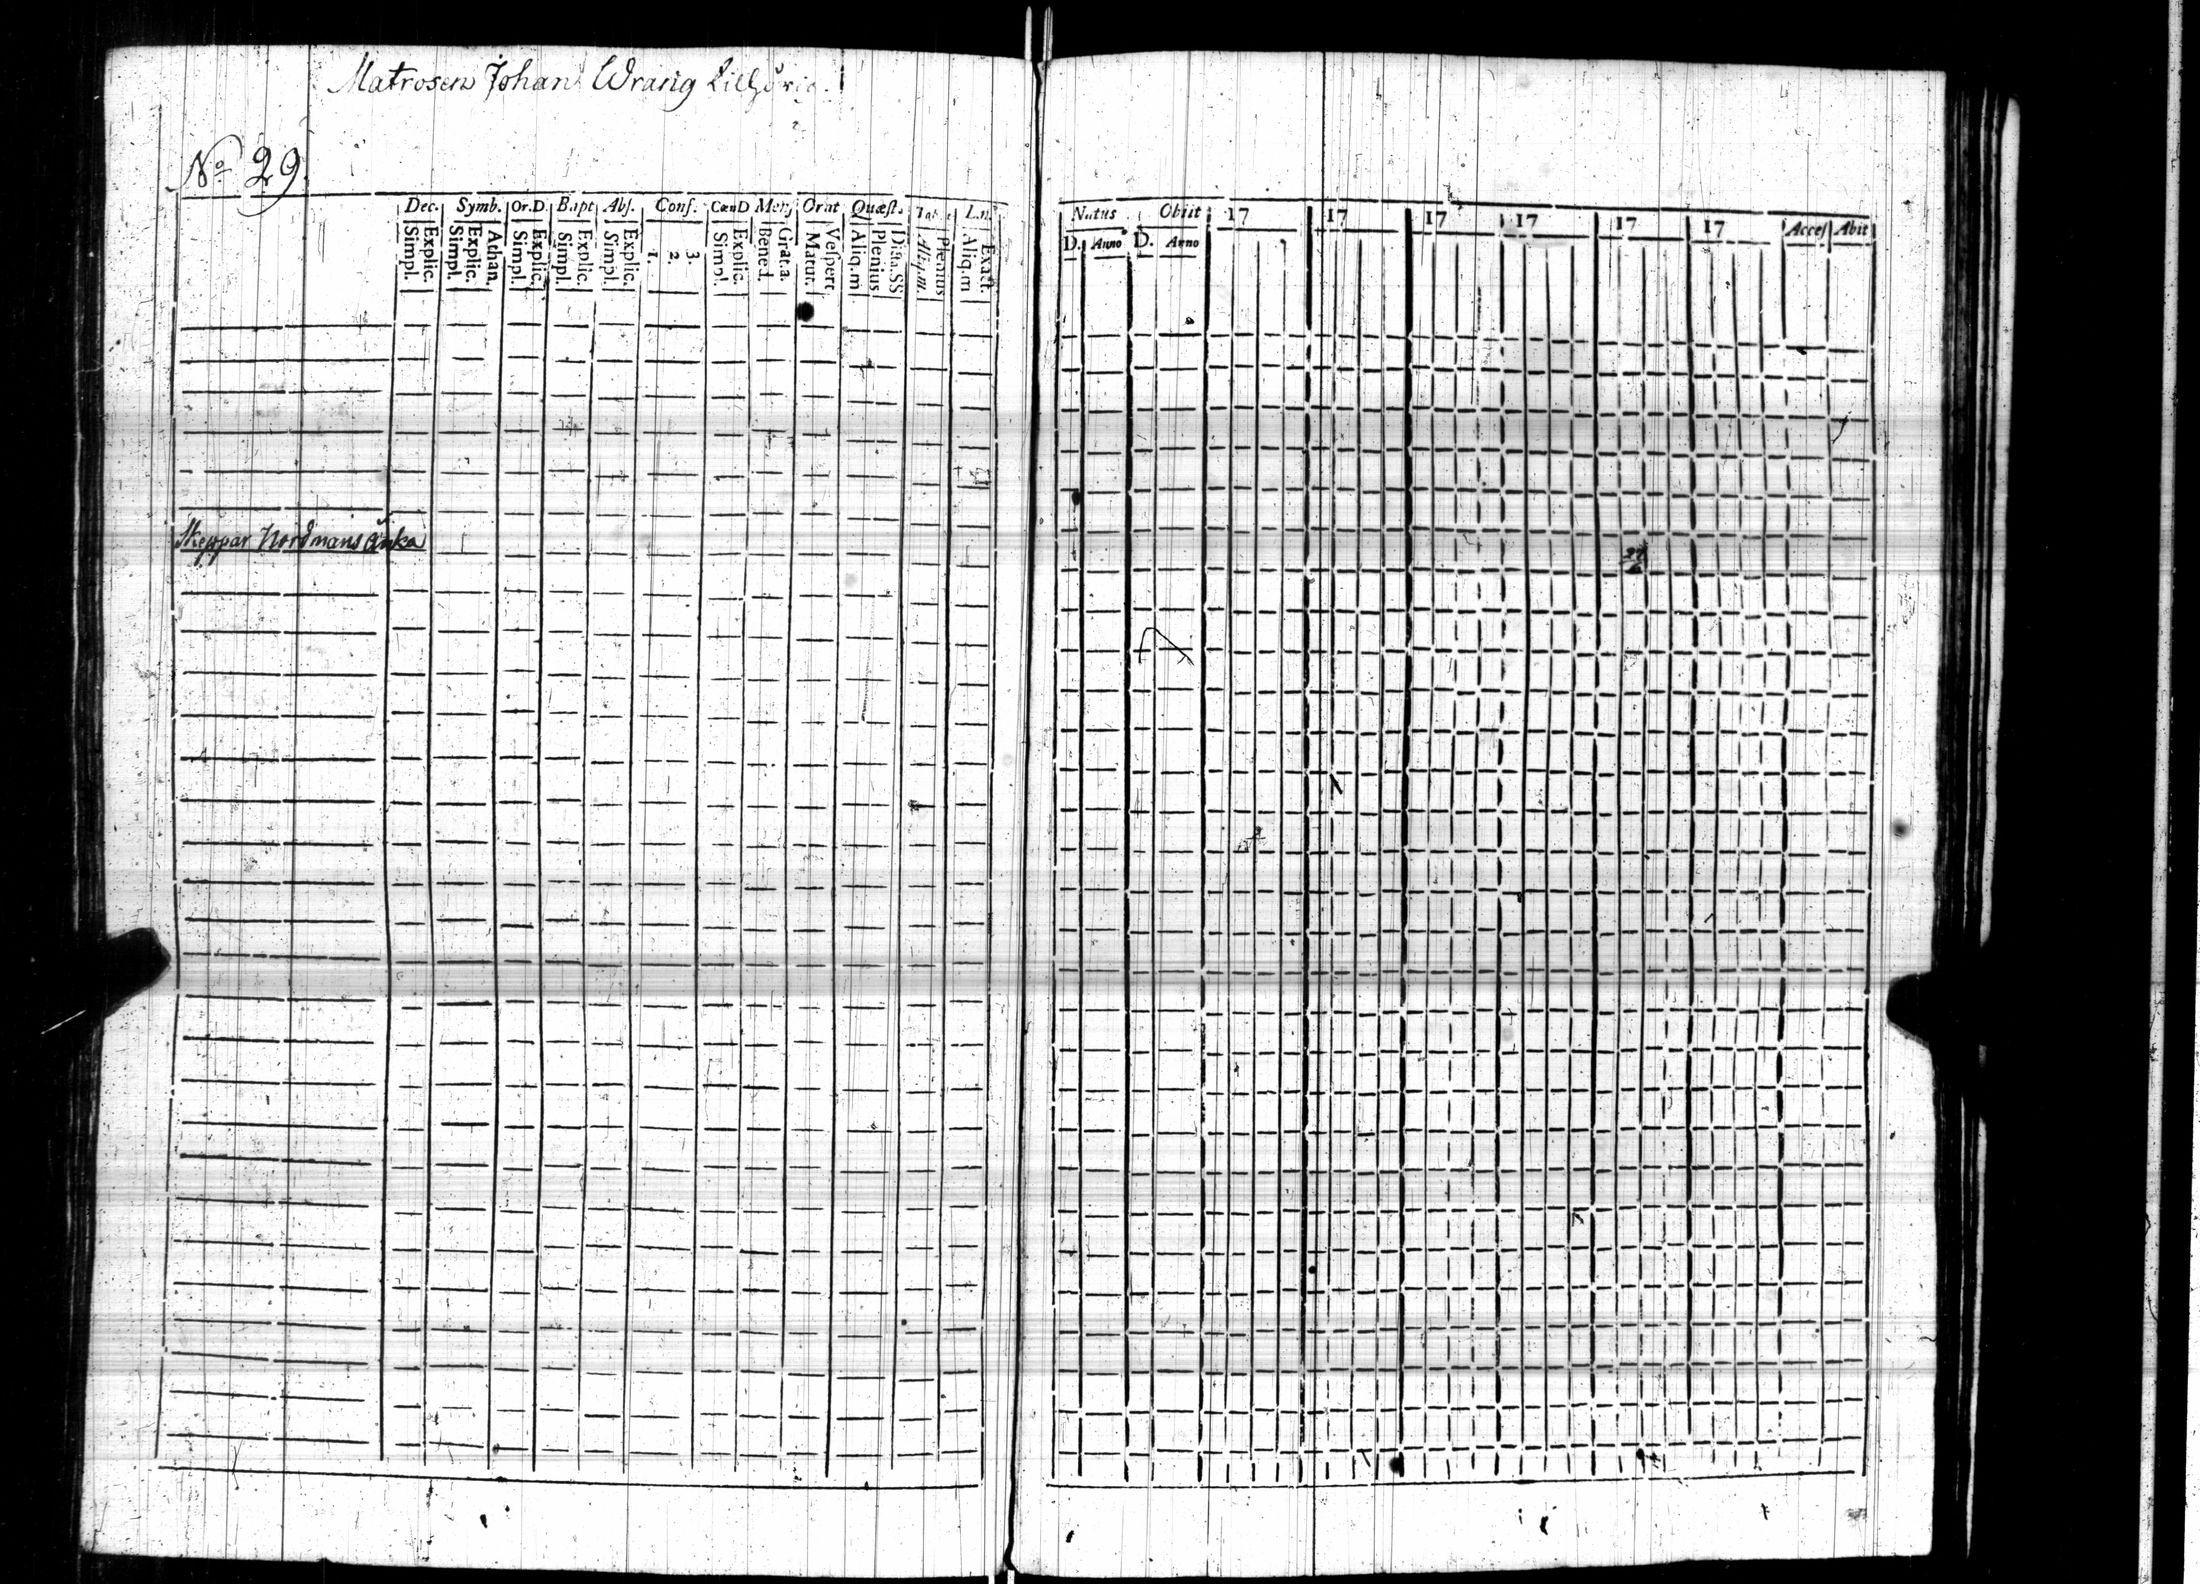 Matrosen Johan Wrang tillhörig.
No 29
Dec. Symb. Or.D Bapt Abs. Conf. CœnD Mens Orat Quæst.
Simpl. Explic. Simpl. Explic. Athan. Simpl. Explic. Simpl. Explic. Simpl. Explic. 1. 2. 3. Simpl. Explic. Bened. Grat.a. Matut. Vespert Aliq.m Plenius Dicta.SS Aliq.m Plenius Aliq.m Exact.
Skeppar Nordmans Änka
Natus Obiit 17 17 17 17 17 17 Acces Abit
D. Anno D. Anno